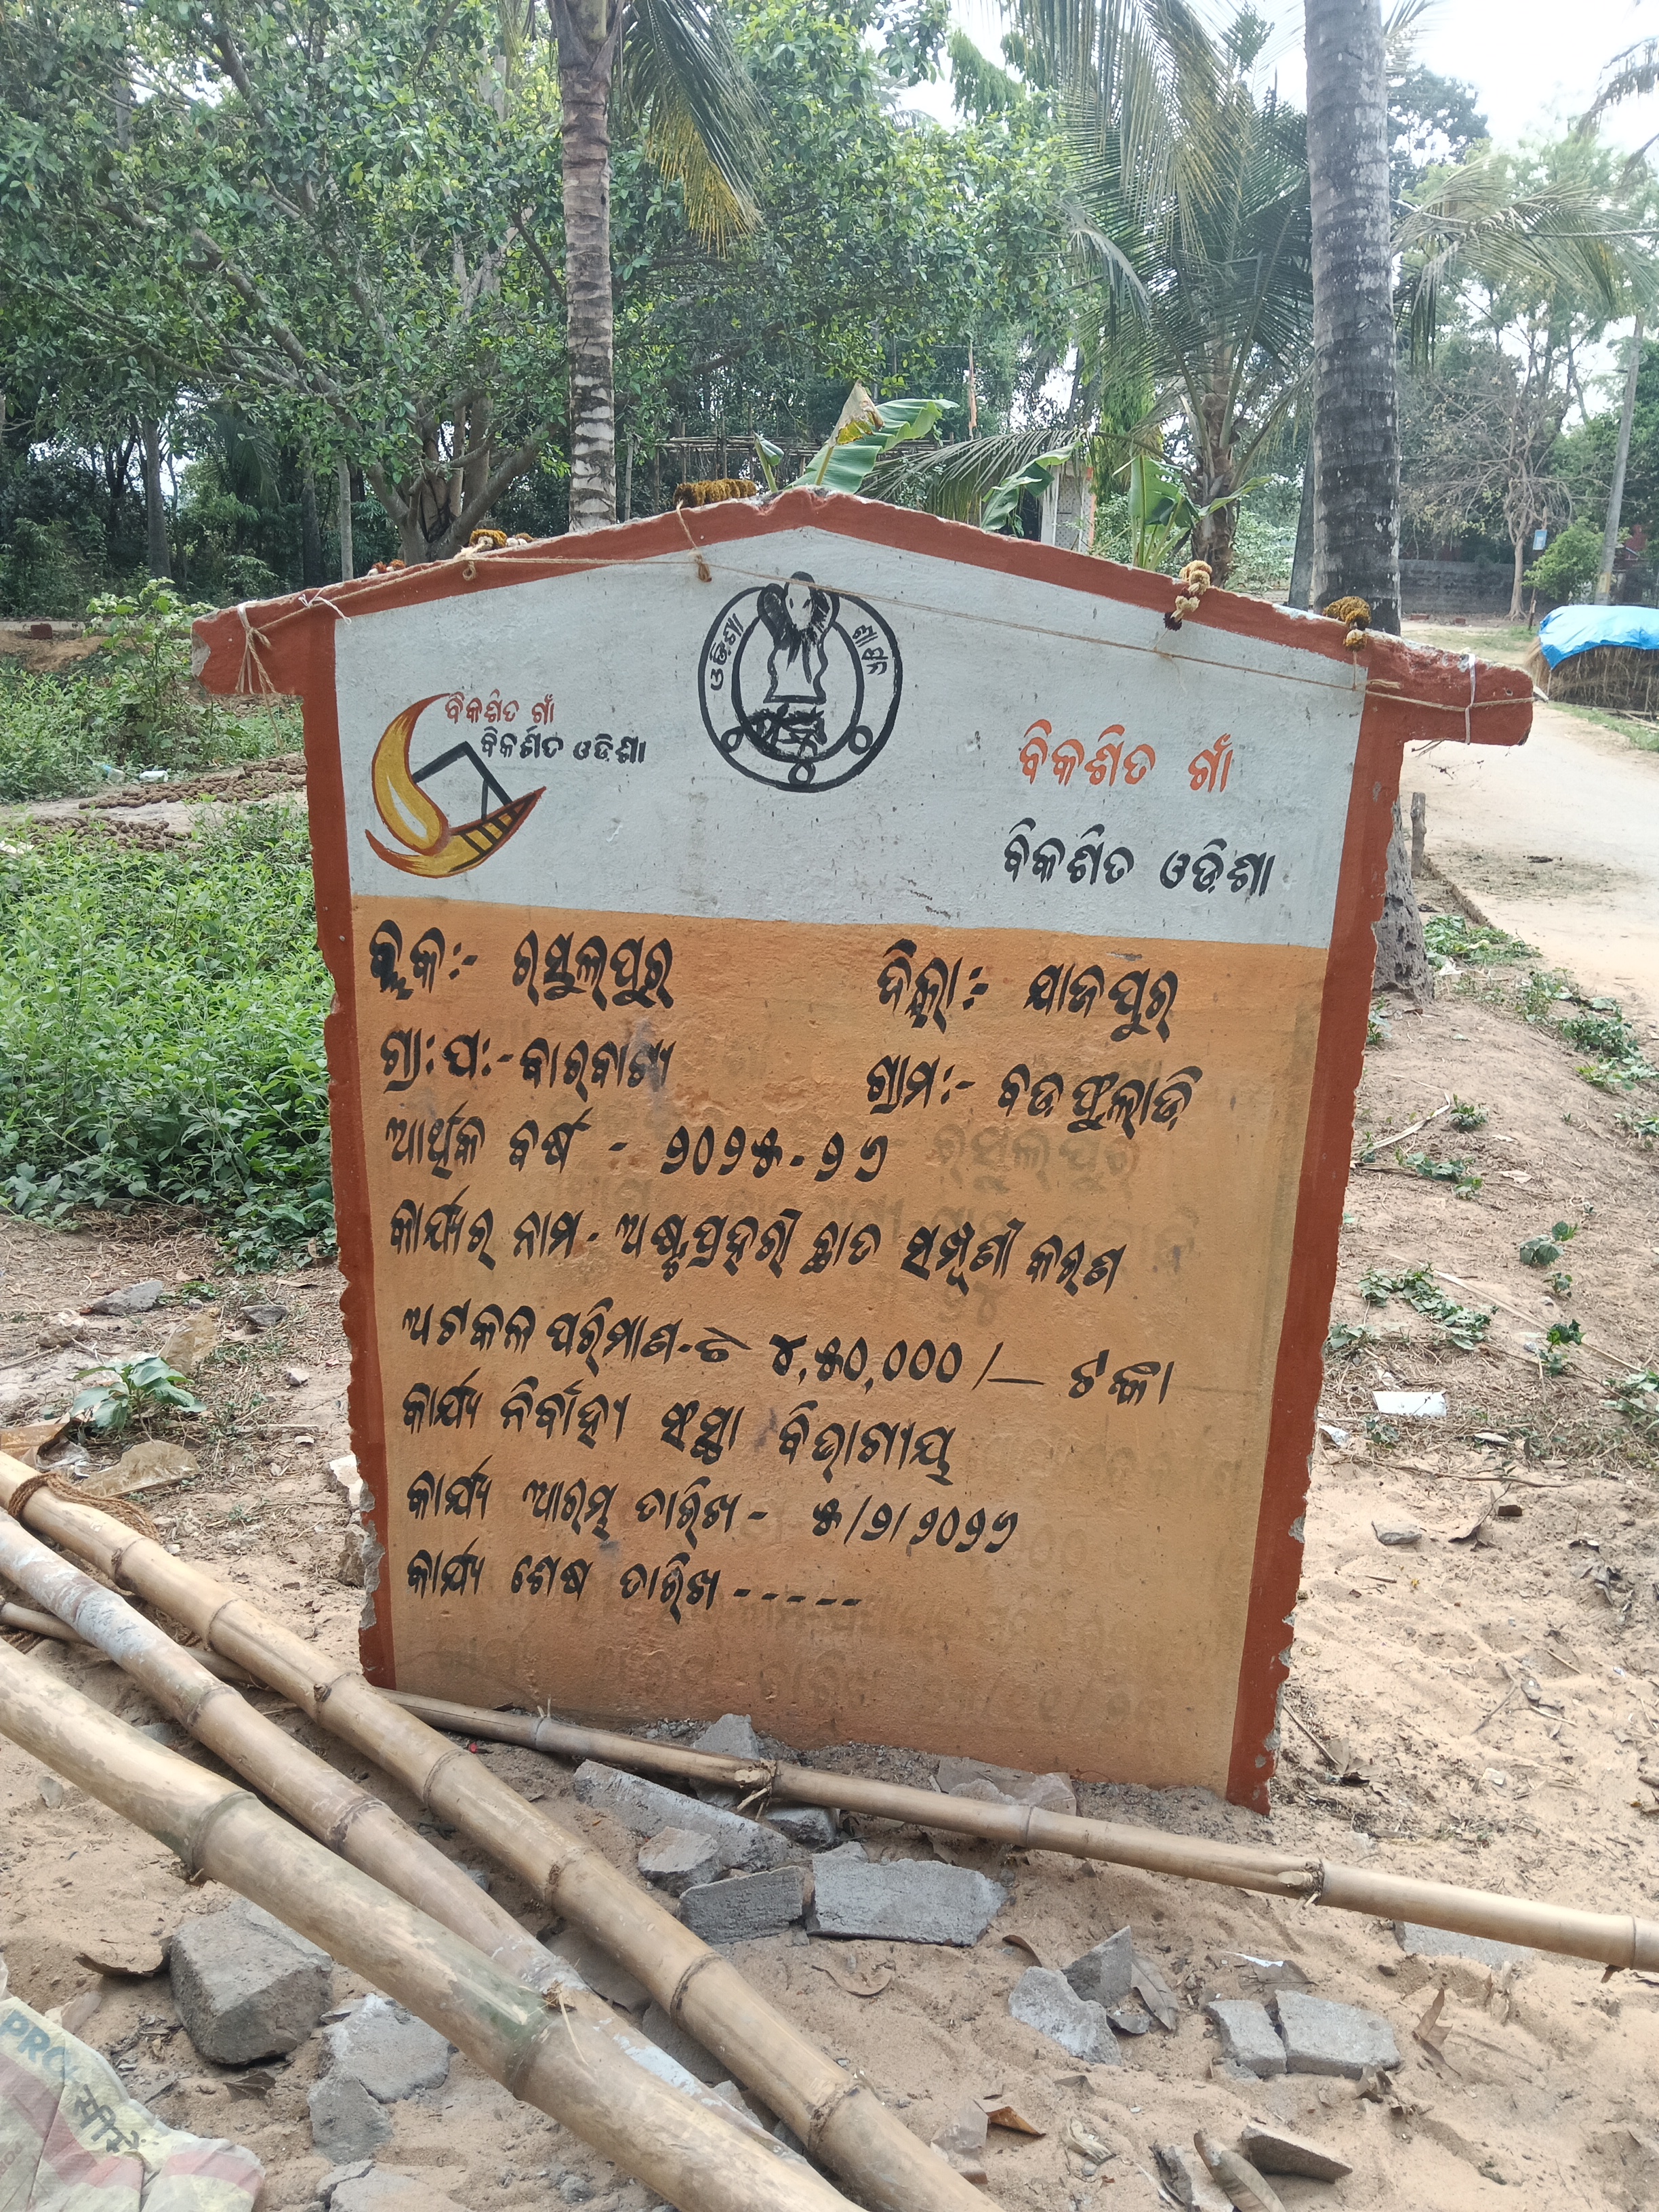 ଓଡ଼ିଶା ଶାସନ
ବିକଶିତ ଗାଁ
ବିକଶିତ ଓଡିଶା
ବିକଶିତ ଗାଁ
ବିକଶିତ ଓଡ଼ିଶା
ବ୍ଲକ:- ରସୁଲପୁର ଜିଲ୍ଲା:- ଯାଜପୁର
ଗ୍ରା:ପ:- ବାରବାଟୀ ଗ୍ରାମ:- ବଡଫୁଲାଡ଼ି
ଆର୍ଥିକ ବର୍ଷ - ୨୦୨୫-୨୬
କାର୍ଯ୍ୟର ନାମ- ଅଷ୍ଟପ୍ରହରୀ ଛାତ ସମ୍ପୂର୍ଣ୍ଣ କରଣ
ଅଟକଳ ପରିମାଣ-ଟ ୪,୫୦,୦୦୦/- ଟଙ୍କା
କାର୍ଯ୍ୟ ନିର୍ବାହୀ ସଂସ୍ଥା ବିଭାଗୀୟ
କାର୍ଯ୍ୟ ଆରମ୍ଭ ତାରିଖ - ୫/୨/୨୦୨୬
କାର୍ଯ୍ୟ ଶେଷ ତାରିଖ -----